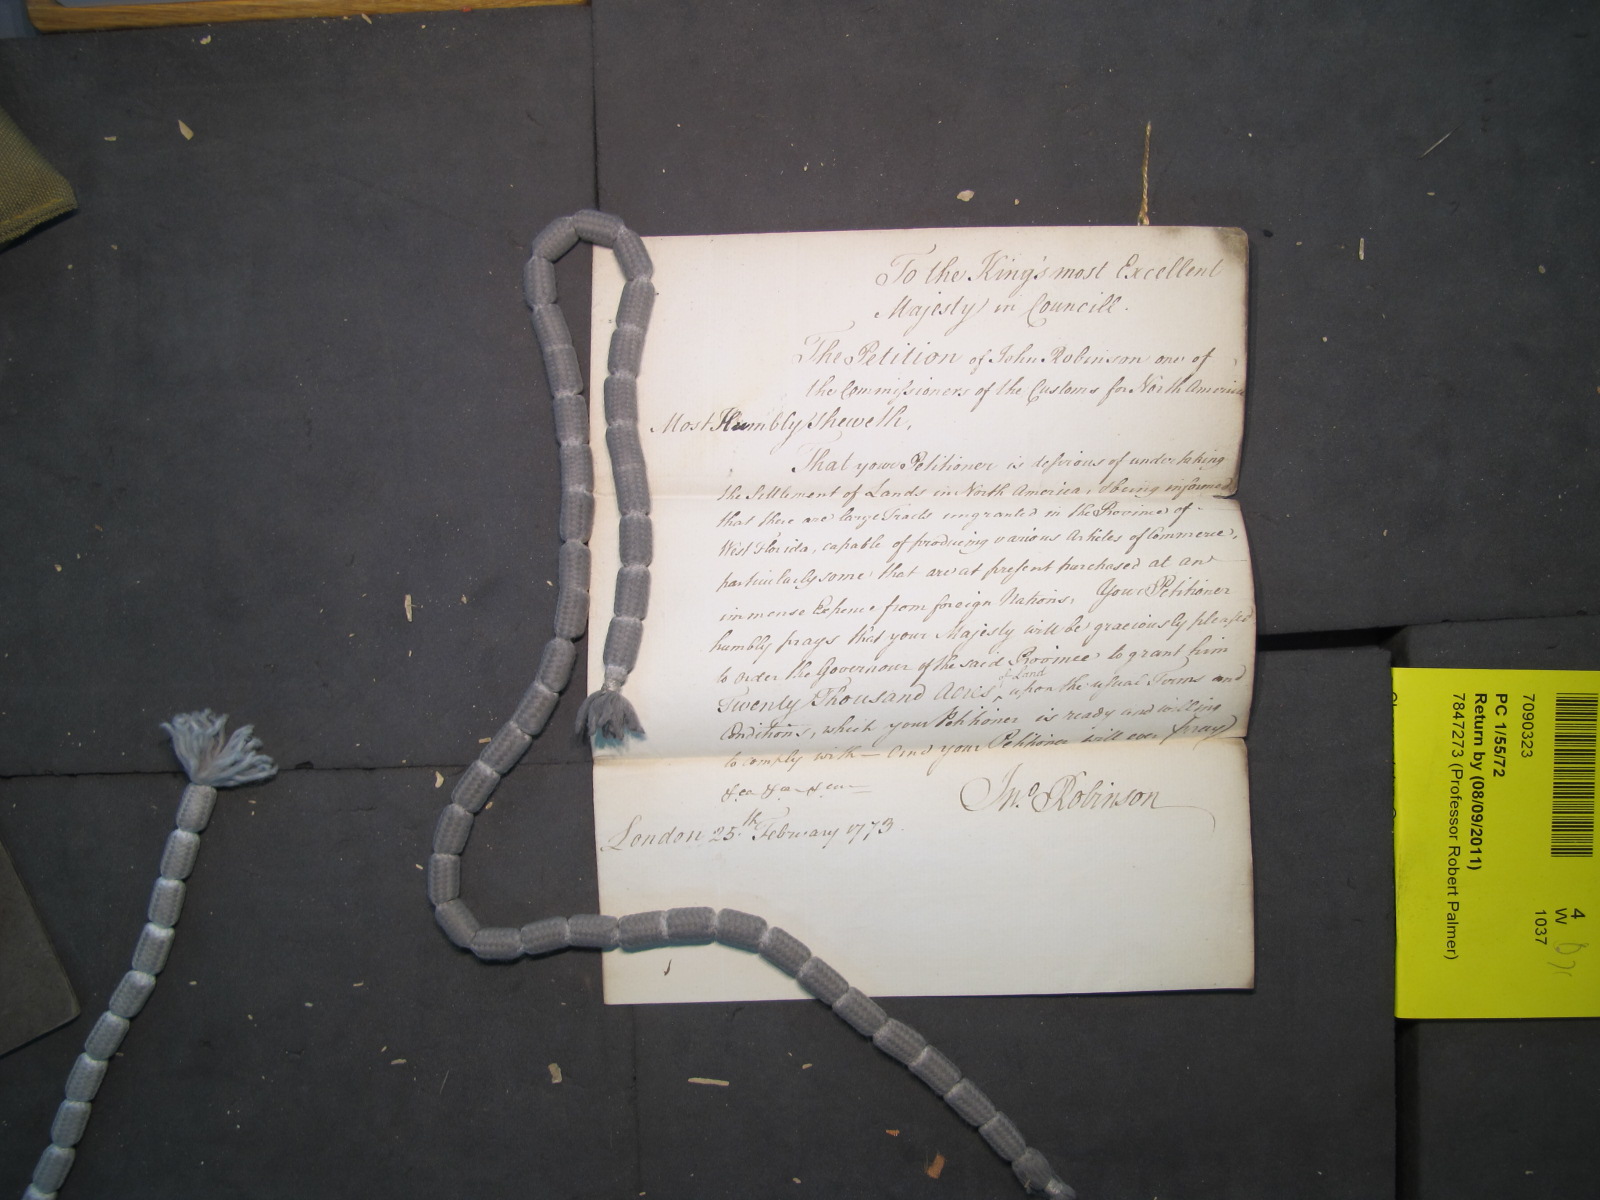 To the King's most Excellent
Majesty in Councill.
The Petition of John Robinson one of
the Commissioners of the Customs for North America
Most Humbly Sheweth,
That your Petitioner is desirous of undertaking
the Settlement of Lands in North America, & being informed
that there are large Tracts ungranted in the Province of
West Florida, capable of producing various Articles of Commerce,
particularly some that are at present purchased at an
immense Expence from foreign Nations, Your Petitioner
humbly prays that your Majesty will be graciously pleased
to order the Governour of the said Province to grant him
of Land
Twenty Thousand Acres ^ upon the usual Terms and
Conditions, which your Petitioner is ready and willing
to comply with — And your Petitioner will ever pray
&ca &ca &ca
Jno. Robinson
London 25th February 1773.
7090323
PC 1/55/72
Return by (08/09/2011)
7847273 (Professor Robert Palmer)
4
W
1037